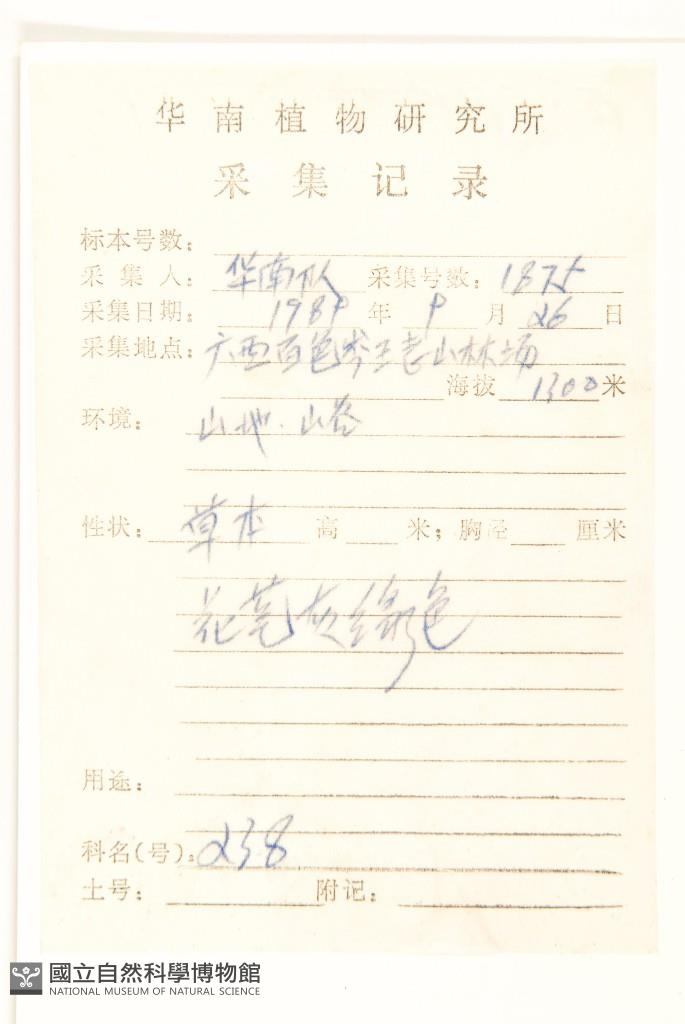 华南植物研究所
采集记录
标本号数：
采集人：华南队 采集号数：1875
采集日期：1989年9月26日
采集地点：广西百色岑王老山林场
海拔 1300米
环境：山地．山谷
性状：草本 高 米；胸径 厘米
花苞灰绿色
用途：
科名(号)：238
土号： 附记：
國立自然科學博物館
NATIONAL MUSEUM OF NATURAL SCIENCE